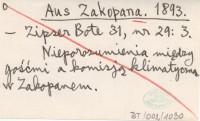 Aus Zakopana. 1893.
- Zipser Bote 31, nr 29: 3.
Nieporozumienia między
gośćmi a komisją klimatyczną
w Zakopanem.
BT 1002/1030